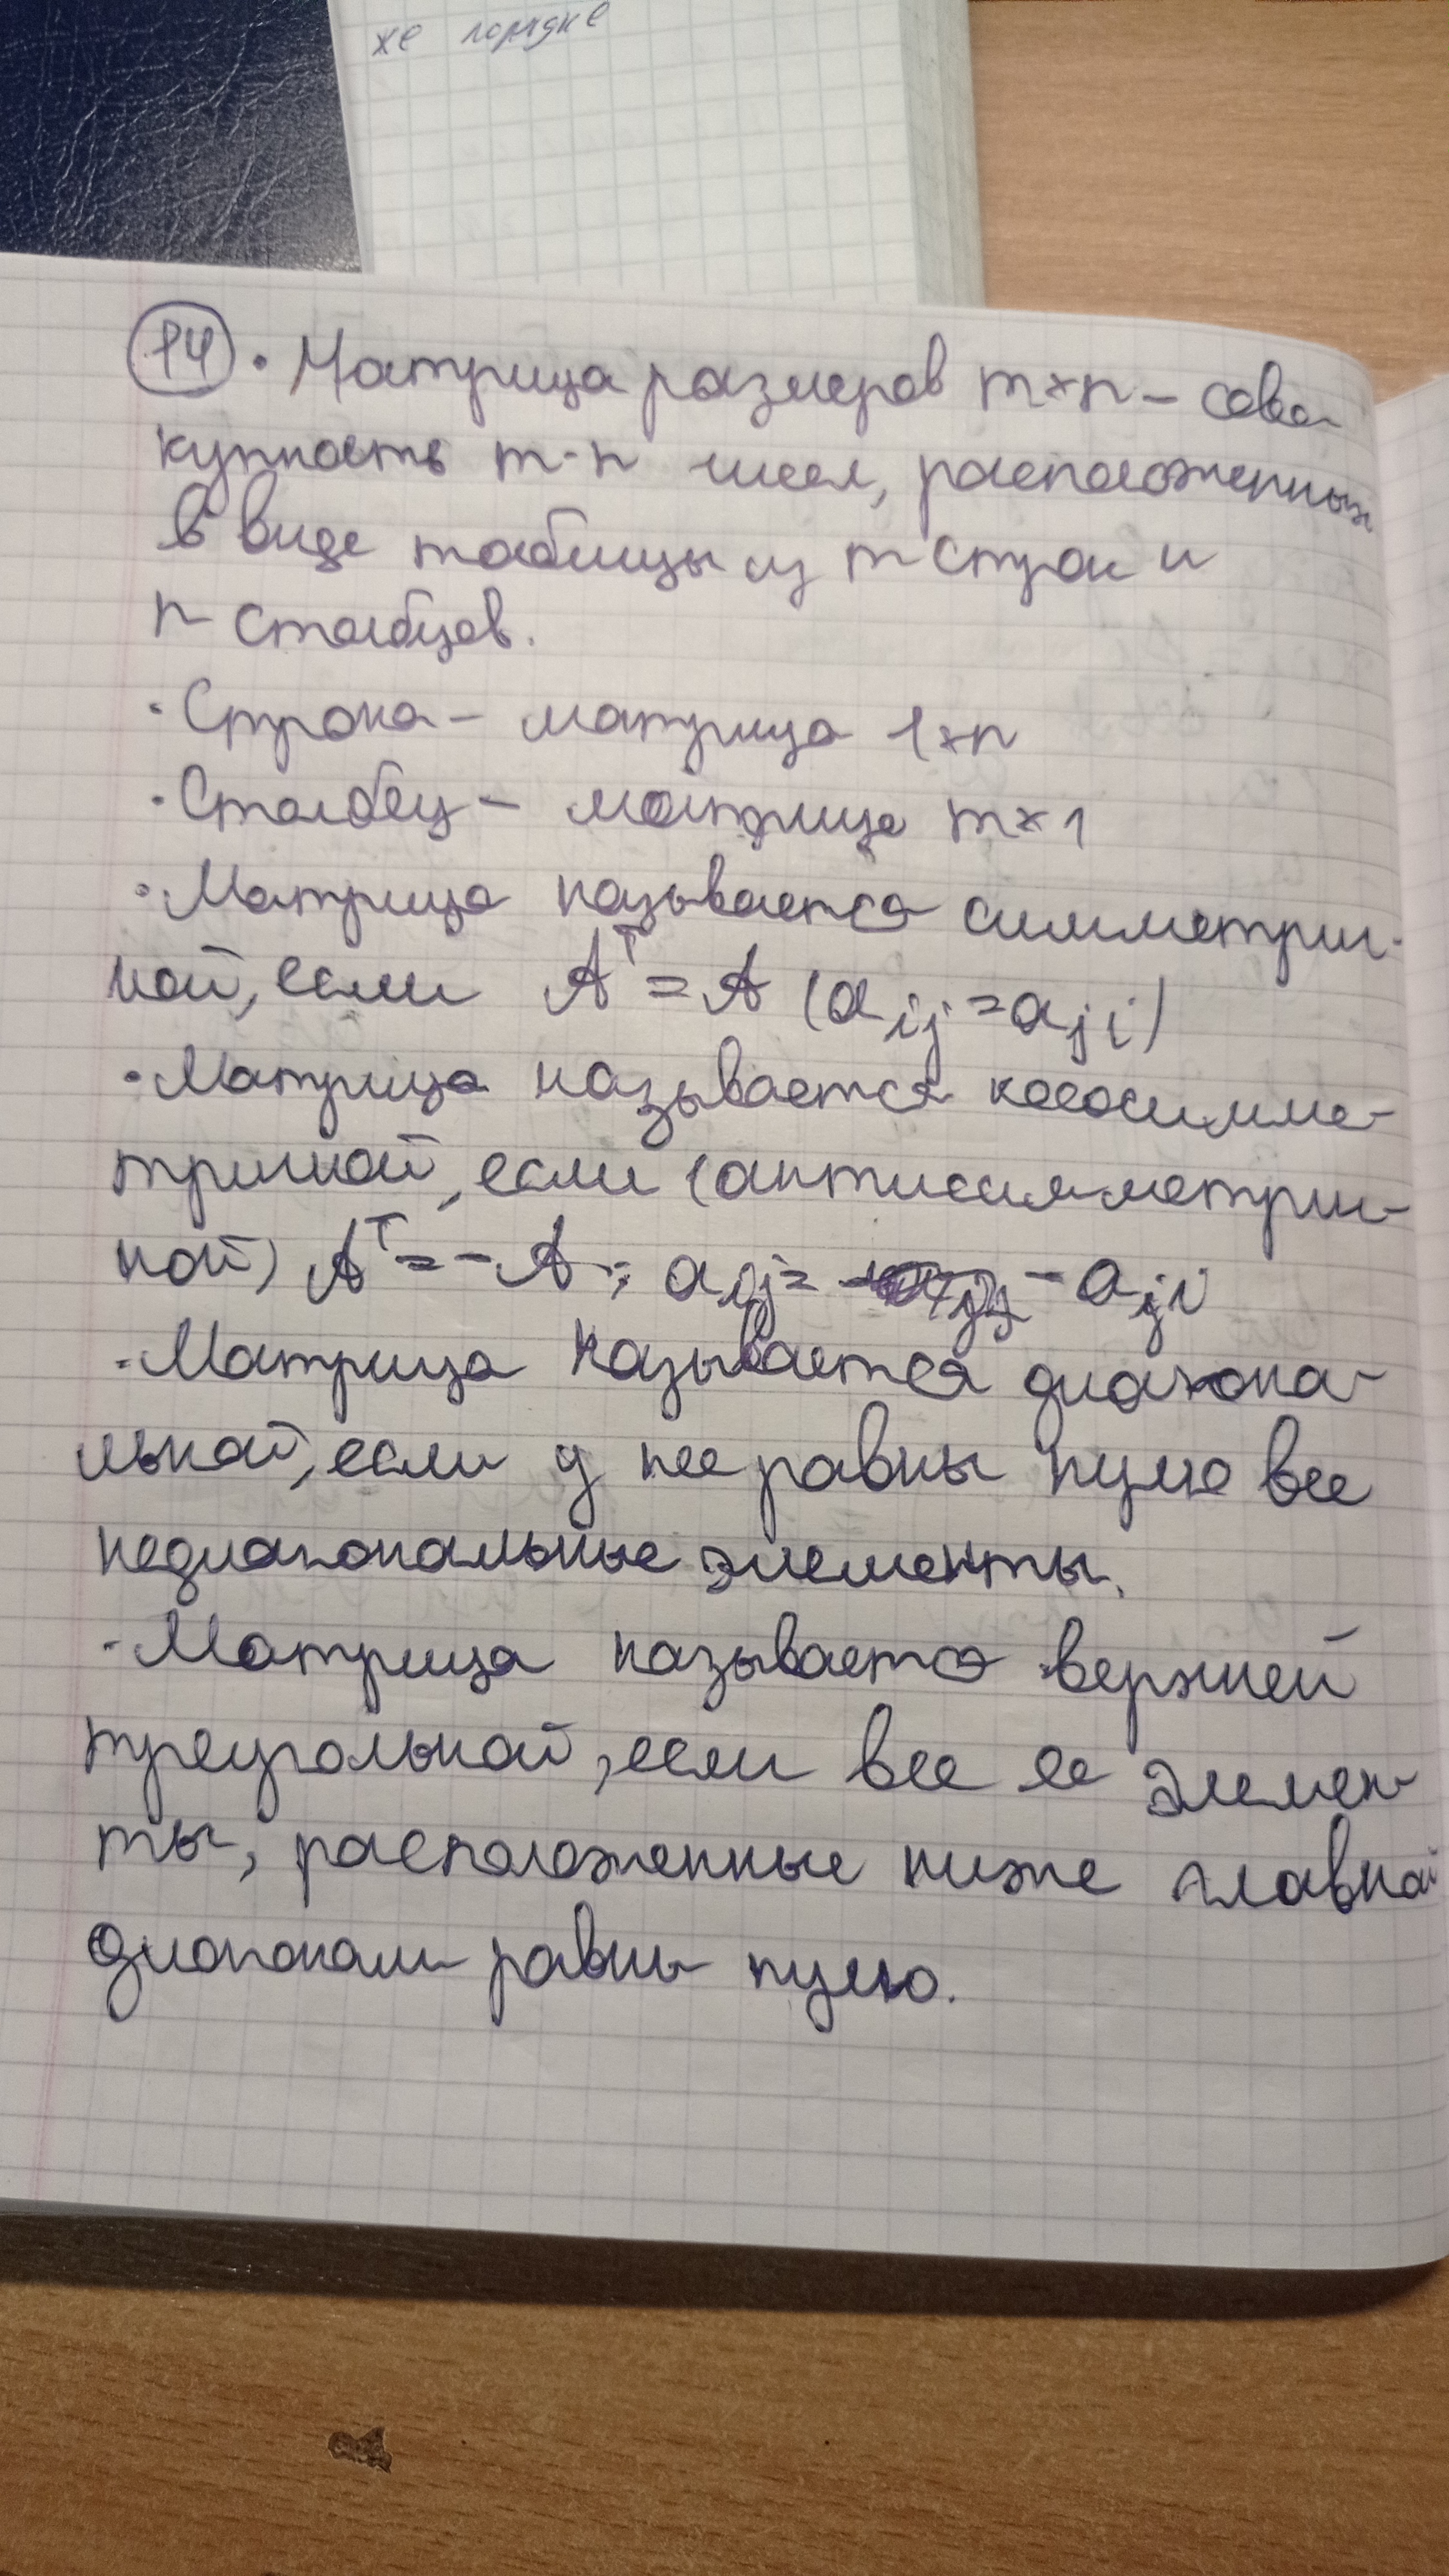 же порядке
14 • Матрица размеров m×n – сово-
купность m·n чисел, расположенных
в виде таблицы из m строк и
n столбцов.
• Строка – матрица 1×n
• Столбец – матрица m×1
• Матрица называется симметрич-
ной, если Aᵀ = A (aij = aji)
• Матрица называется кососимме-
тричной, если (антисимметрич-
ной) Aᵀ = -A ; aij = -aji
• Матрица называется диагона-
льной, если у нее равны нулю все
недиагональные элементы.
• Матрица называется верхней
треугольной, если все ее элемен-
ты, расположенные ниже главной
диагонали равны нулю.